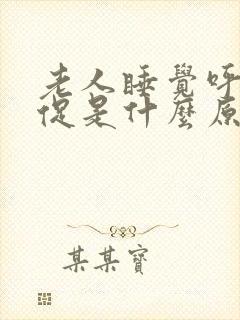 老人睡覺呼
促是什麼原
某某寶